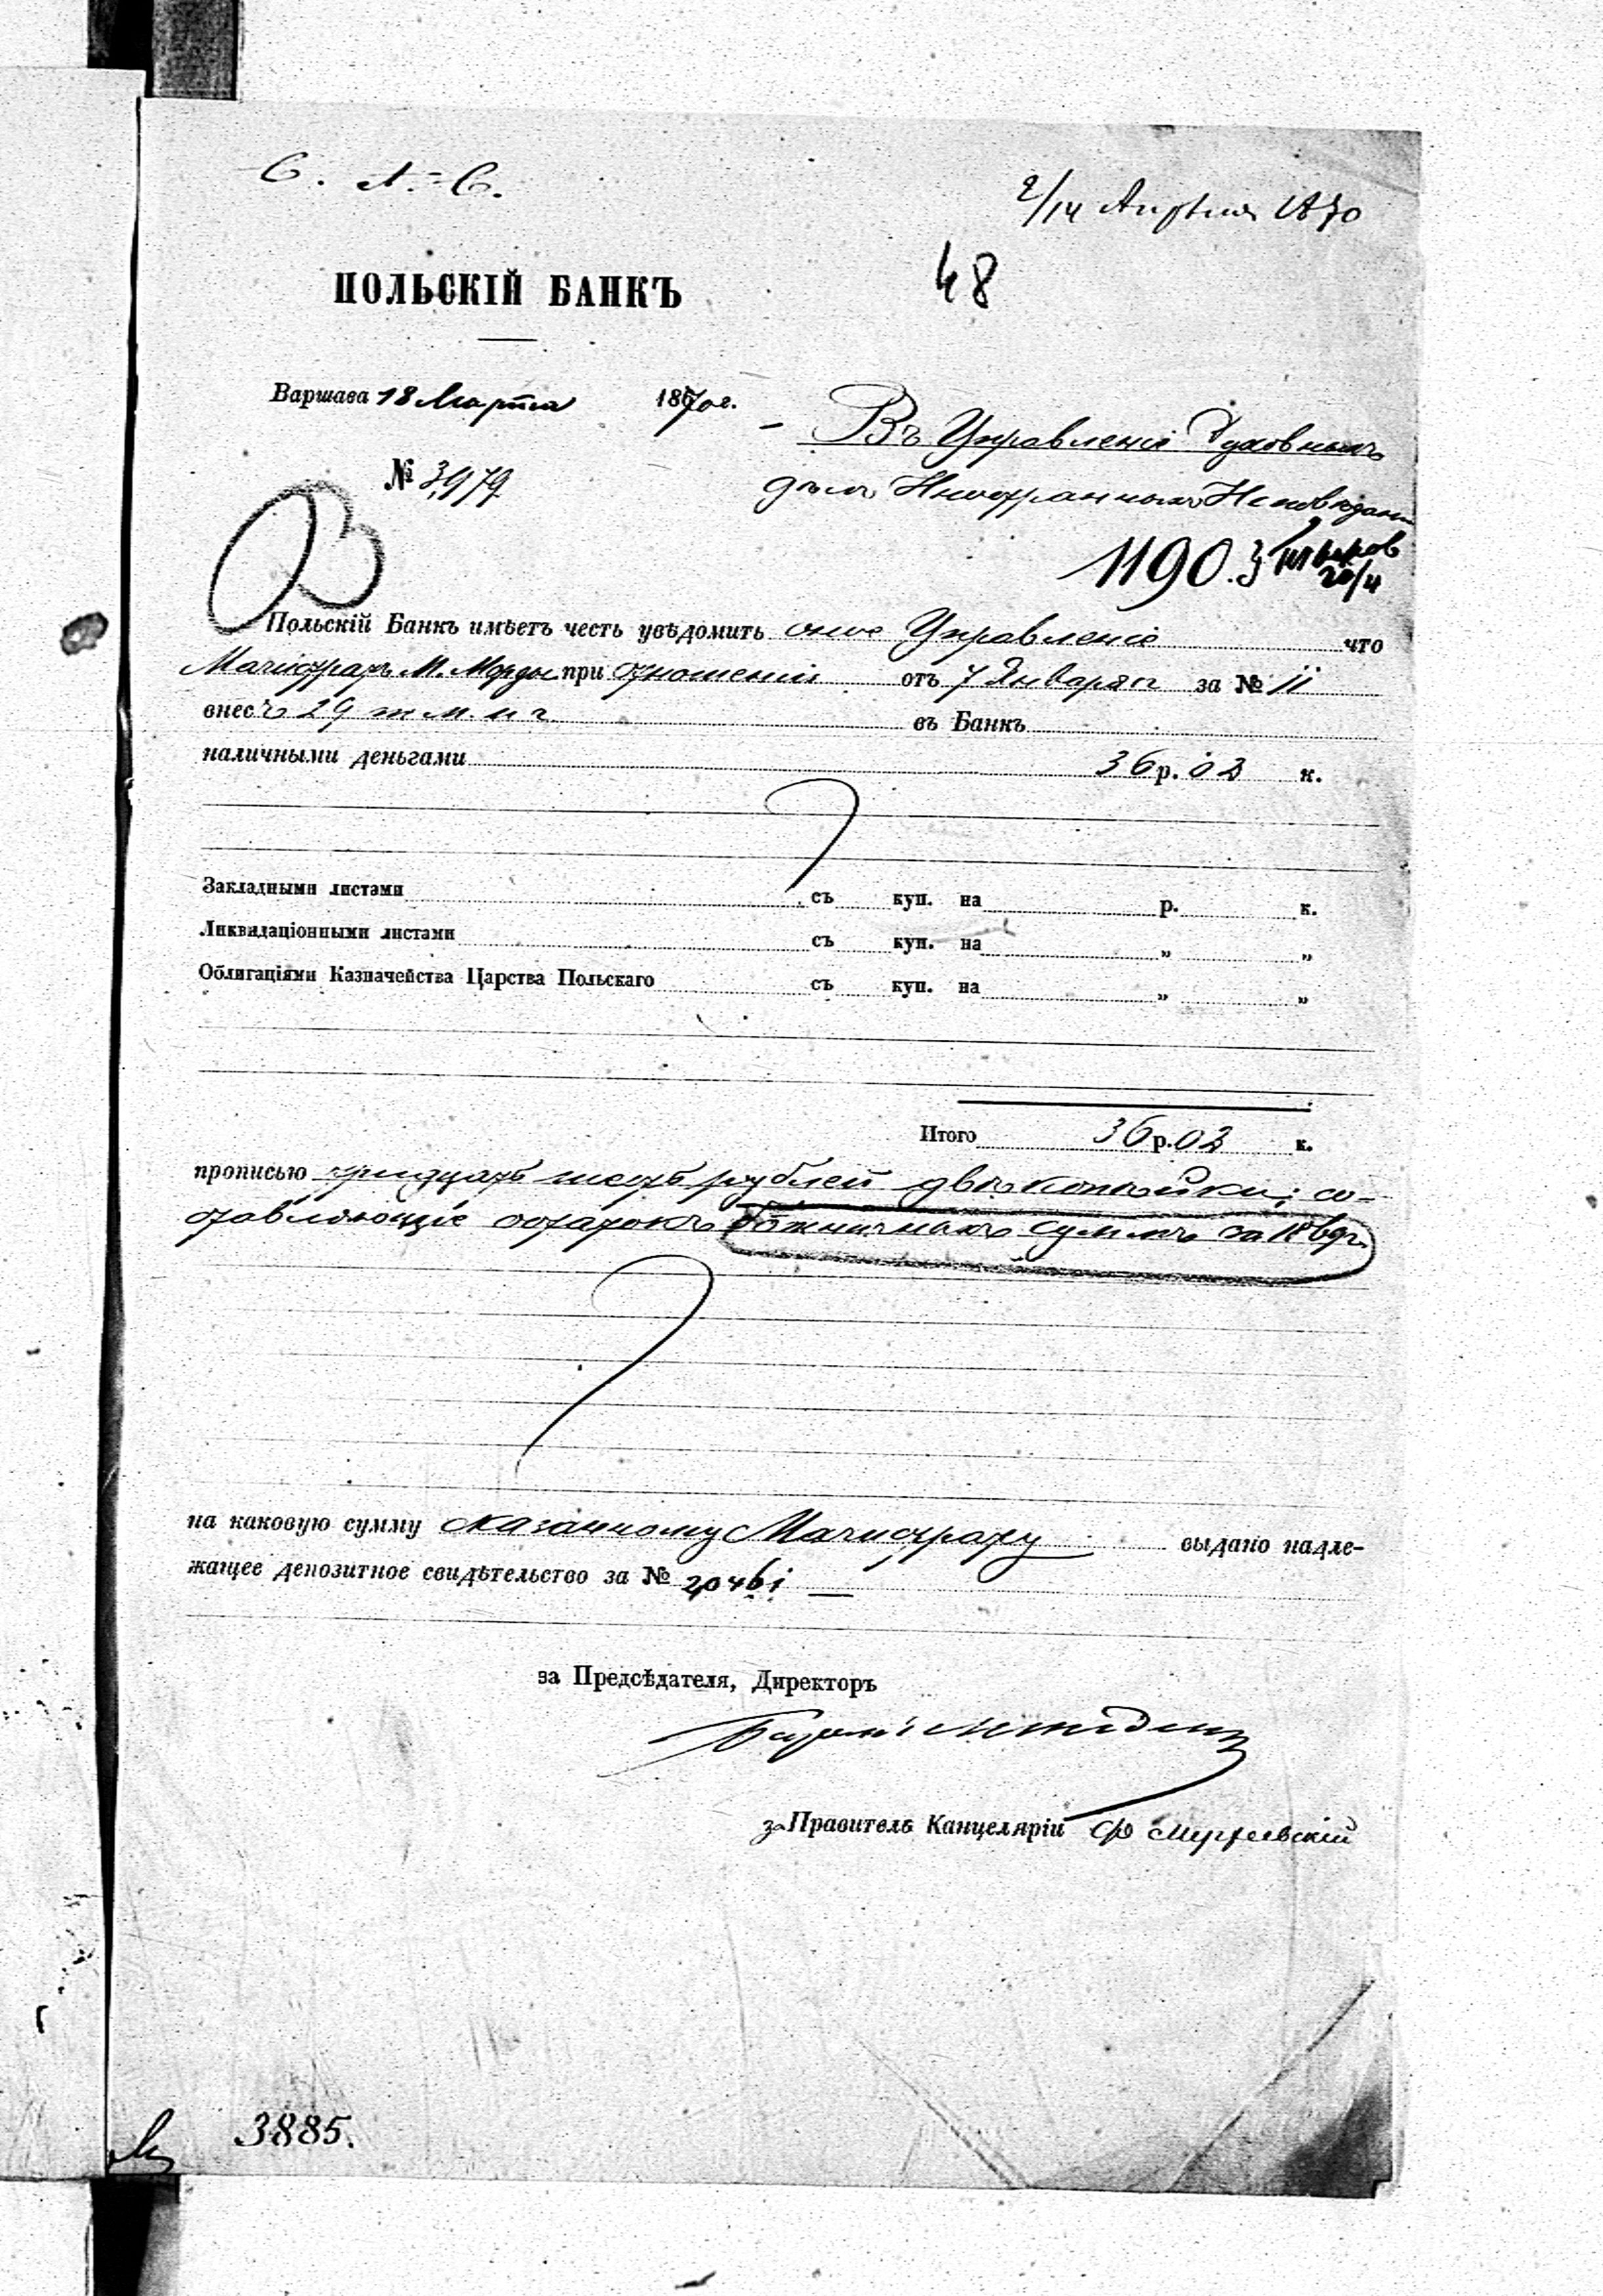 2/14 Апрѣля 1870
48
ПОЛЬСКІЙ БАНКЪ
Варшава 18 Марта 1870 г.
№ 3979
Въ Управленіе Духовныхъ
дѣлъ Иностранныхъ Исповѣданій
1190.
20/4
Польскій Банкъ имѣетъ честь уведомить оное Управленіе что
Магистратъ М. Морды при отношеніи отъ 7 Января за № 11
внесъ 29 въ Банкъ
наличными деньгами 36 р. 02 к.
Закладными листами съ куп. на р. к.
Ликвидаціонными листами съ куп. на „ „
Облигаціями Казначейства Царства Польскаго съ куп. на „ „
Итого 36 р. 02 к.
прописью тридцать шесть рублей двѣ копѣйки; со-
ставляющіе остатокъ божничныхъ суммъ за
на каковую сумму сказанному Магистрату выдано надле-
жащее депозитное свидѣтельство за № 20461
за Предсѣдателя, Директоръ
за Правитель Канцеляріи
3885.